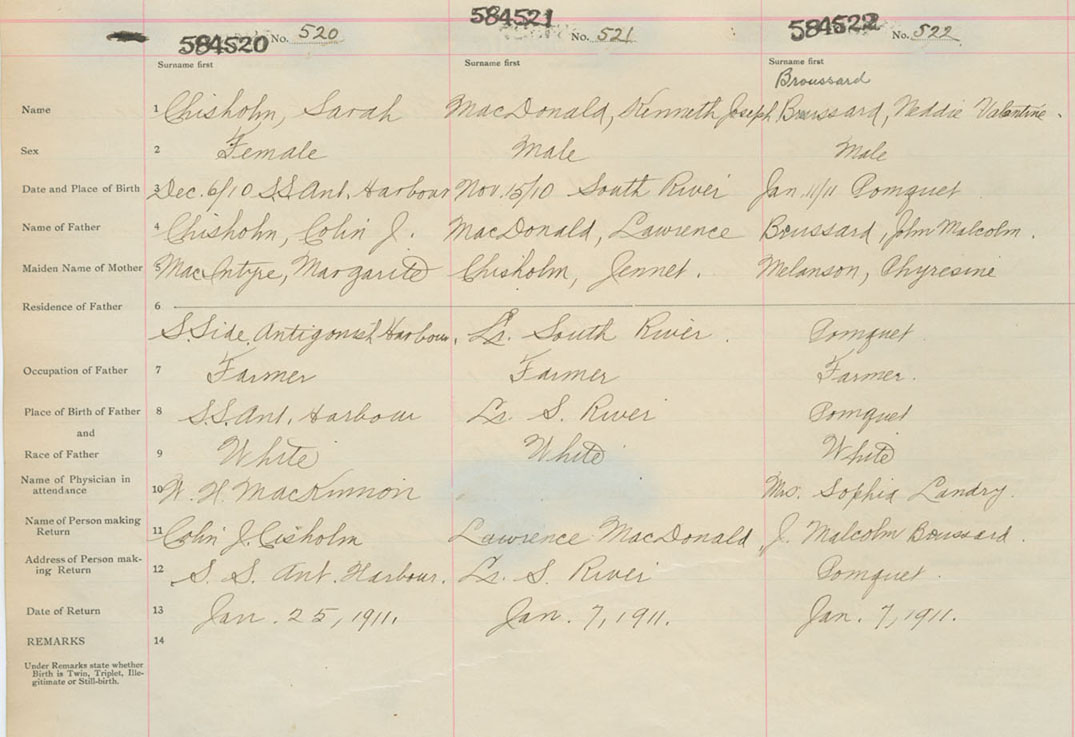 584520 No. 520 584521 No. 521 584522 No. 522
Surname first Surname first Surname first
Broussard
Name 1 Chisholm, Sarah MacDonald, Kenneth Joseph Broussard, Neddie Valentine.
Sex 2 Female Male Male
Date and Place of Birth 3 Dec. 6/10 S.S. Ant. Harbour Nov. 15/10 South River Jan. 11/11 Pomquet
Name of Father 4 Chisholm, Colin J. MacDonald, Lawrence Broussard, John Malcolm.
Maiden Name of Mother 5 MacIntyre, Margarite Chisholm, Jennet. Melanson, Phyresine
Residence of Father 6
S. Side Antigonish Harbour. Lr. South River. Pomquet
Occupation of Father 7 Farmer Farmer Farmer.
Place of Birth of Father 8 S.S. Ant. Harbour Lr. S. River Pomquet
and
Race of Father 9 White White White
Name of Physician in
attendance 10 W. H. MacKinnon Mrs. Sophia Landry.
Name of Person making
Return 11 Colin J. Cisholm Lawrence MacDonald J. Malcolm Broussard.
Address of Person mak-
ing Return 12 S. S. Ant. Harbour. Lr. S. River Pomquet.
Date of Return 13 Jan. 25, 1911. Jan. 7, 1911. Jan. 7, 1911.
REMARKS 14
Under Remarks state whether
Birth is Twin, Triplet, Ille-
gitimate or Still-birth.